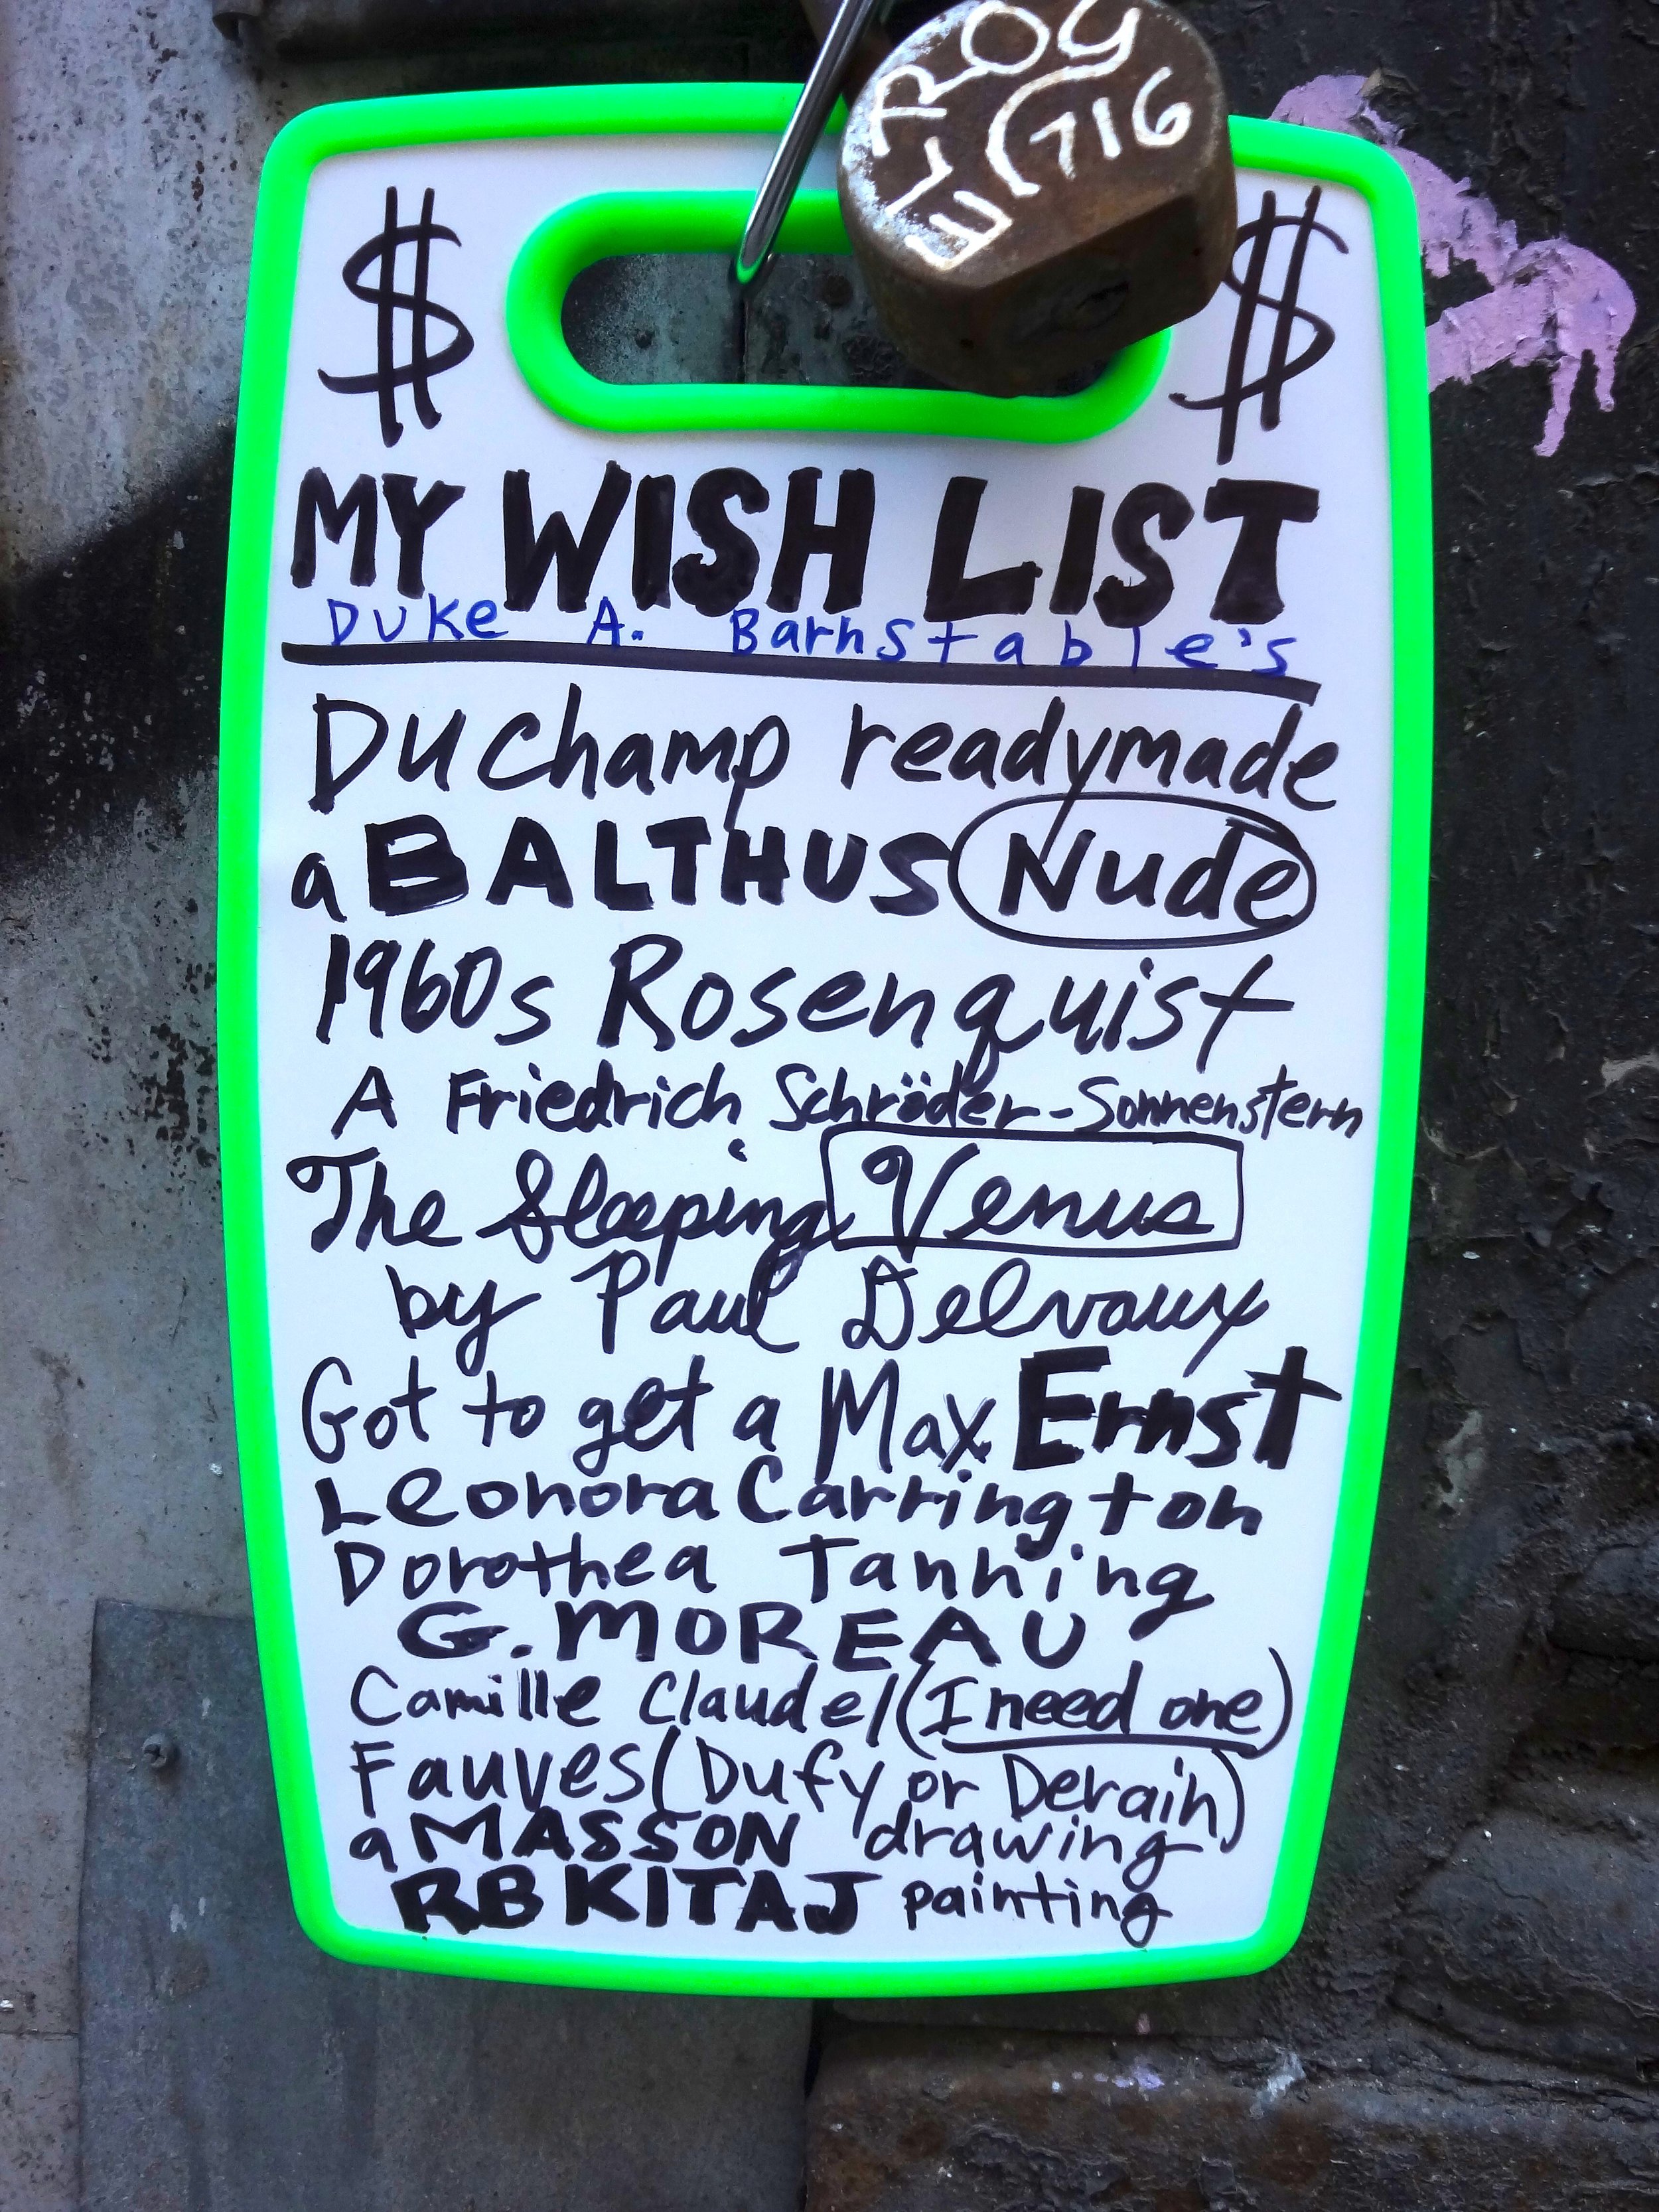 ELROY
(716
$ $
MY WISH LIST
Duke A. Barnstable's
Duchamp readymade
a BALTHUS Nude
1960s Rosenquist
A Friedrich Schröder-Sonnenstern
The Sleeping Venus
by Paul Delvaux
Got to get a Max Ernst
Leonora Carrington
Dorothea Tanning
G. MOREAU
Camille Claudel (I need one)
Fauves (Dufy or Derain)
a MASSON drawing
RB KITAJ painting